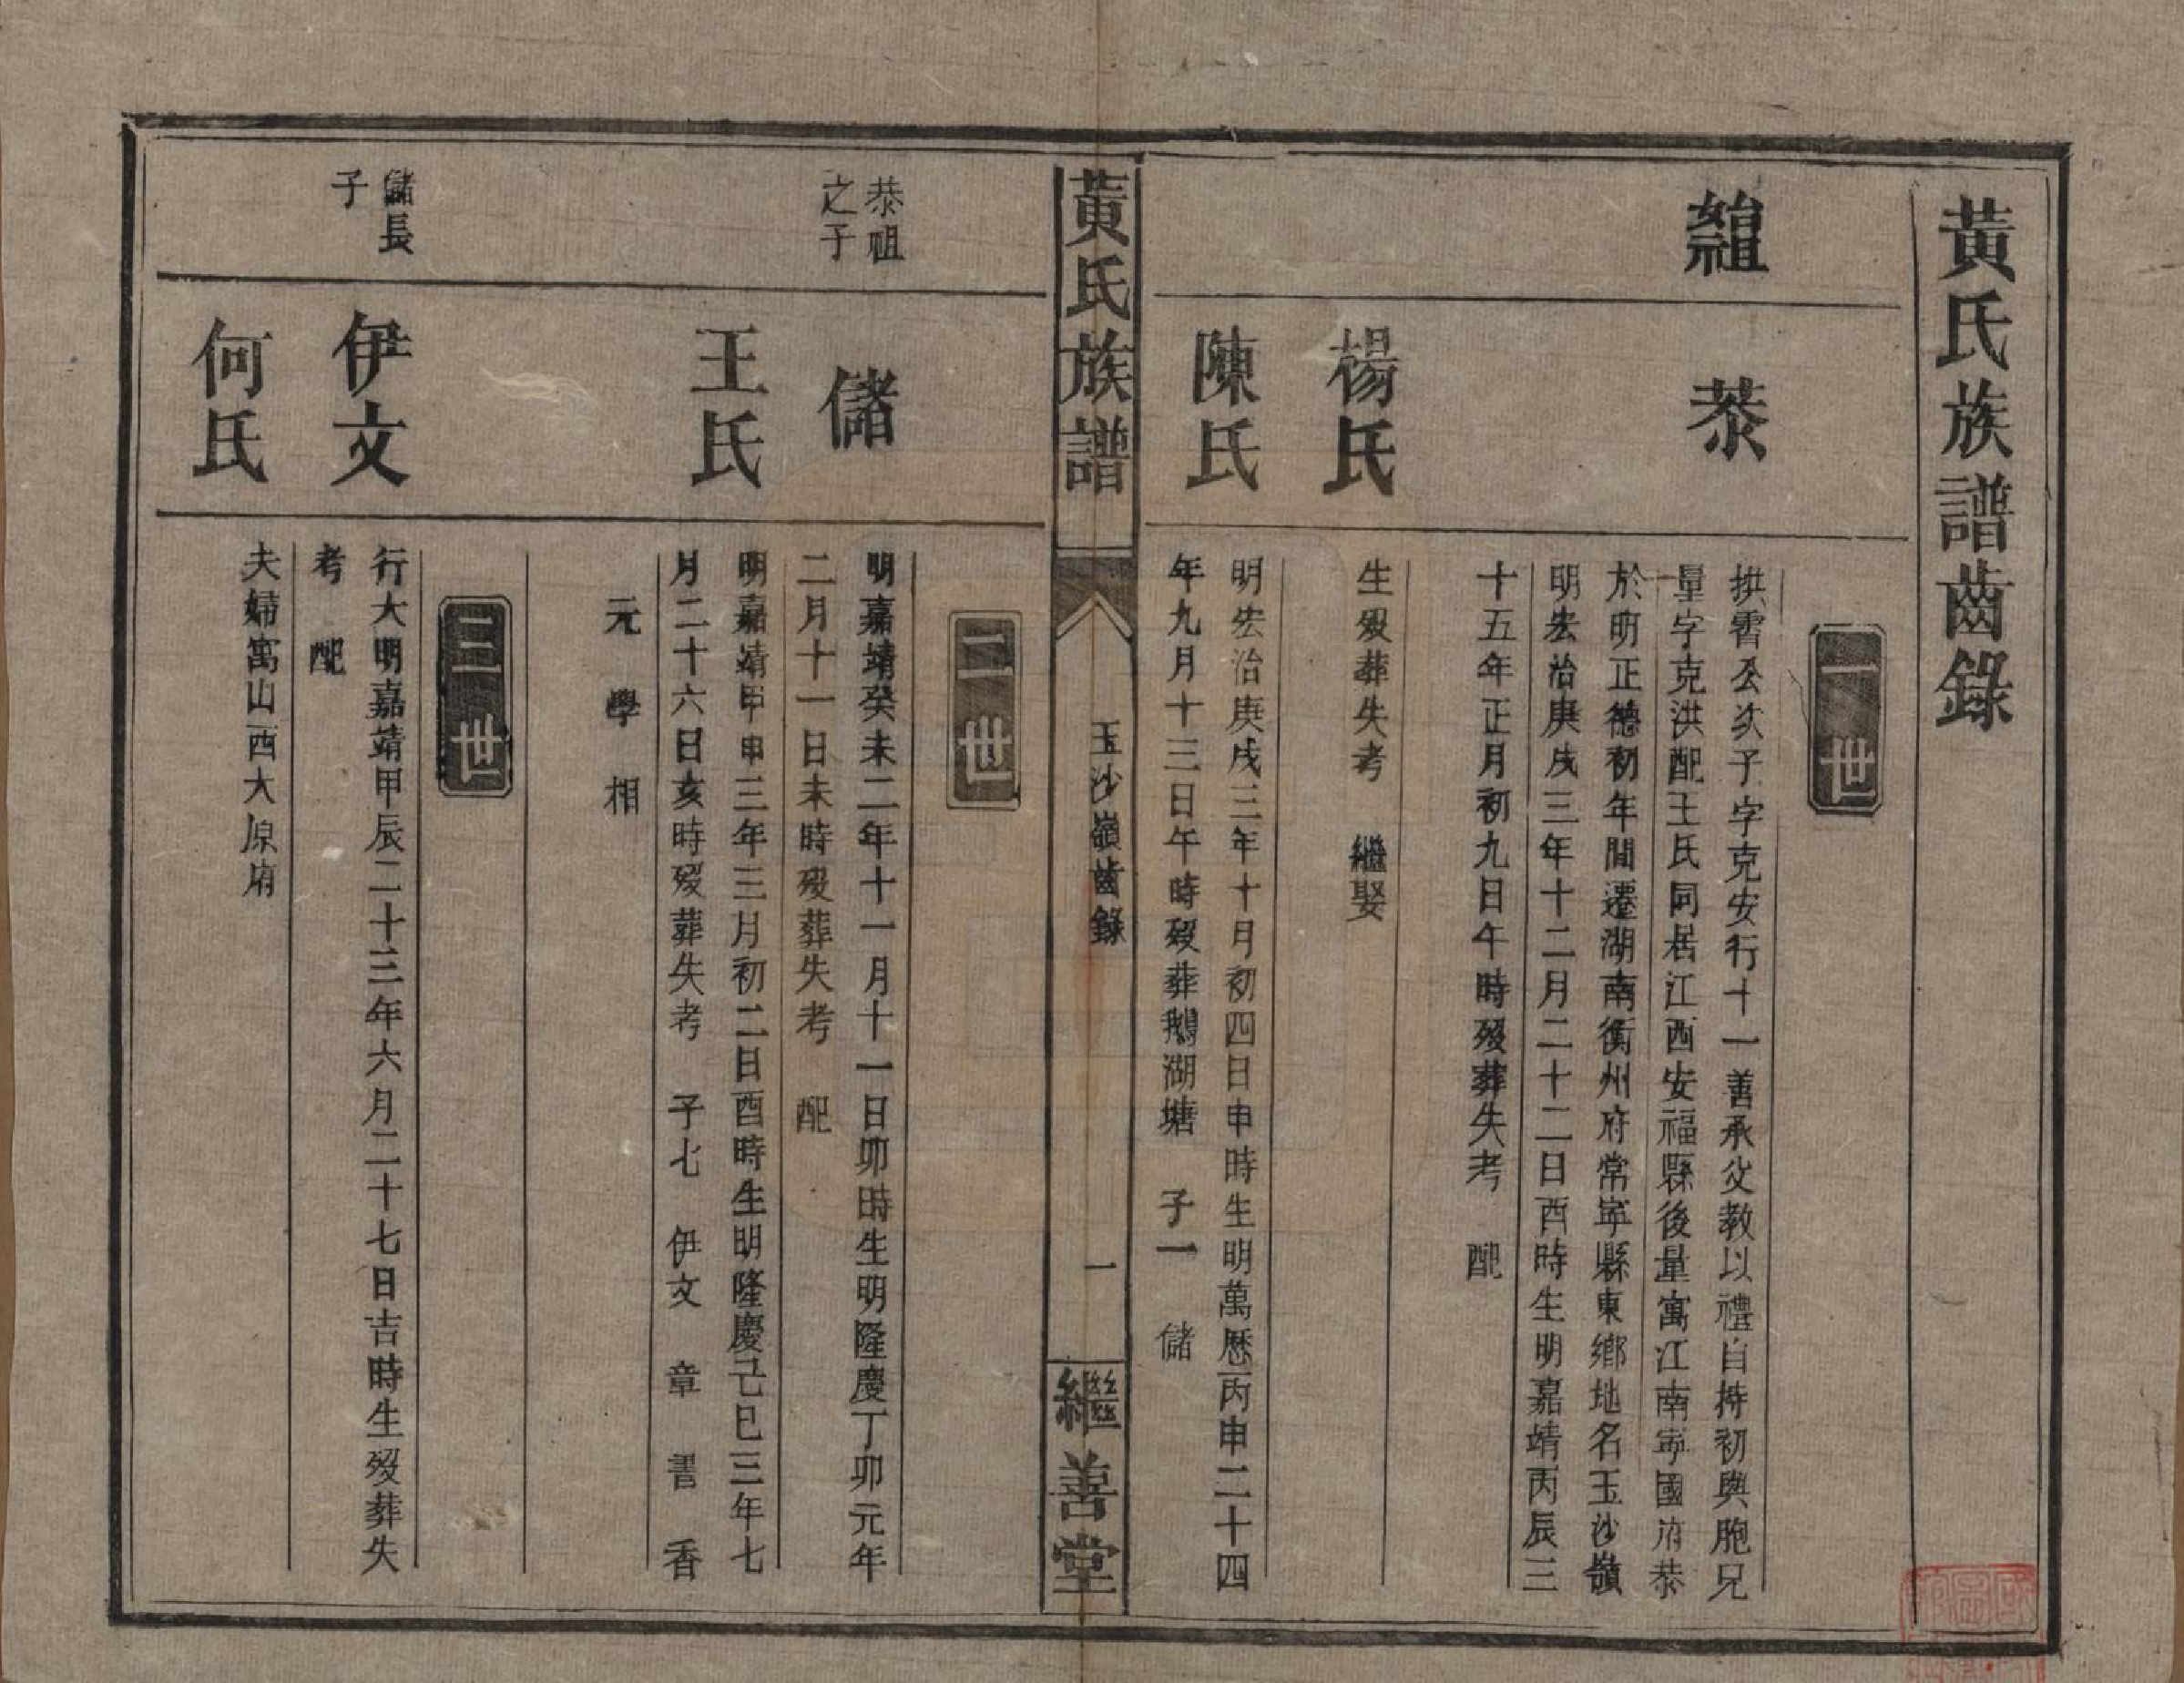 黃氏族譜齒錄
一世
始祖
恭
拱霄公次子字克安行十一善承父教以禮自持初與胞兄
量字克洪配王氏同居江西安福縣後量寓江南寧國府恭
於明正德初年間遷湖南衡州府常寧縣東鄉地名玉沙嶺
明宏治庚戌三年十二月二十二日酉時生明嘉靖丙辰三
十五年正月初九日午時歿葬失考 配
楊氏
生歿葬失考 繼娶
陳氏
明宏治庚戌三年十月初四日申時生明萬歷丙申二十四
年九月十三日午時歿葬鵝湖塘 子一 儲
黃氏族譜
玉沙嶺齒錄
一
繼善堂
二世
恭祖
之子
儲
明嘉靖癸未二年十一月十一日卯時生明隆慶丁卯元年
二月十一日未時歿葬失考 配
王氏
明嘉靖甲申三年三月初二日酉時生明隆慶己巳三年七
月二十六日亥時歿葬失考 子七 伊文 章 書 香
元 學 相
三世
儲長
子
伊文
行大明嘉靖甲辰二十三年六月二十七日吉時生歿葬失
考 配
何氏
夫婦寓山西大原府